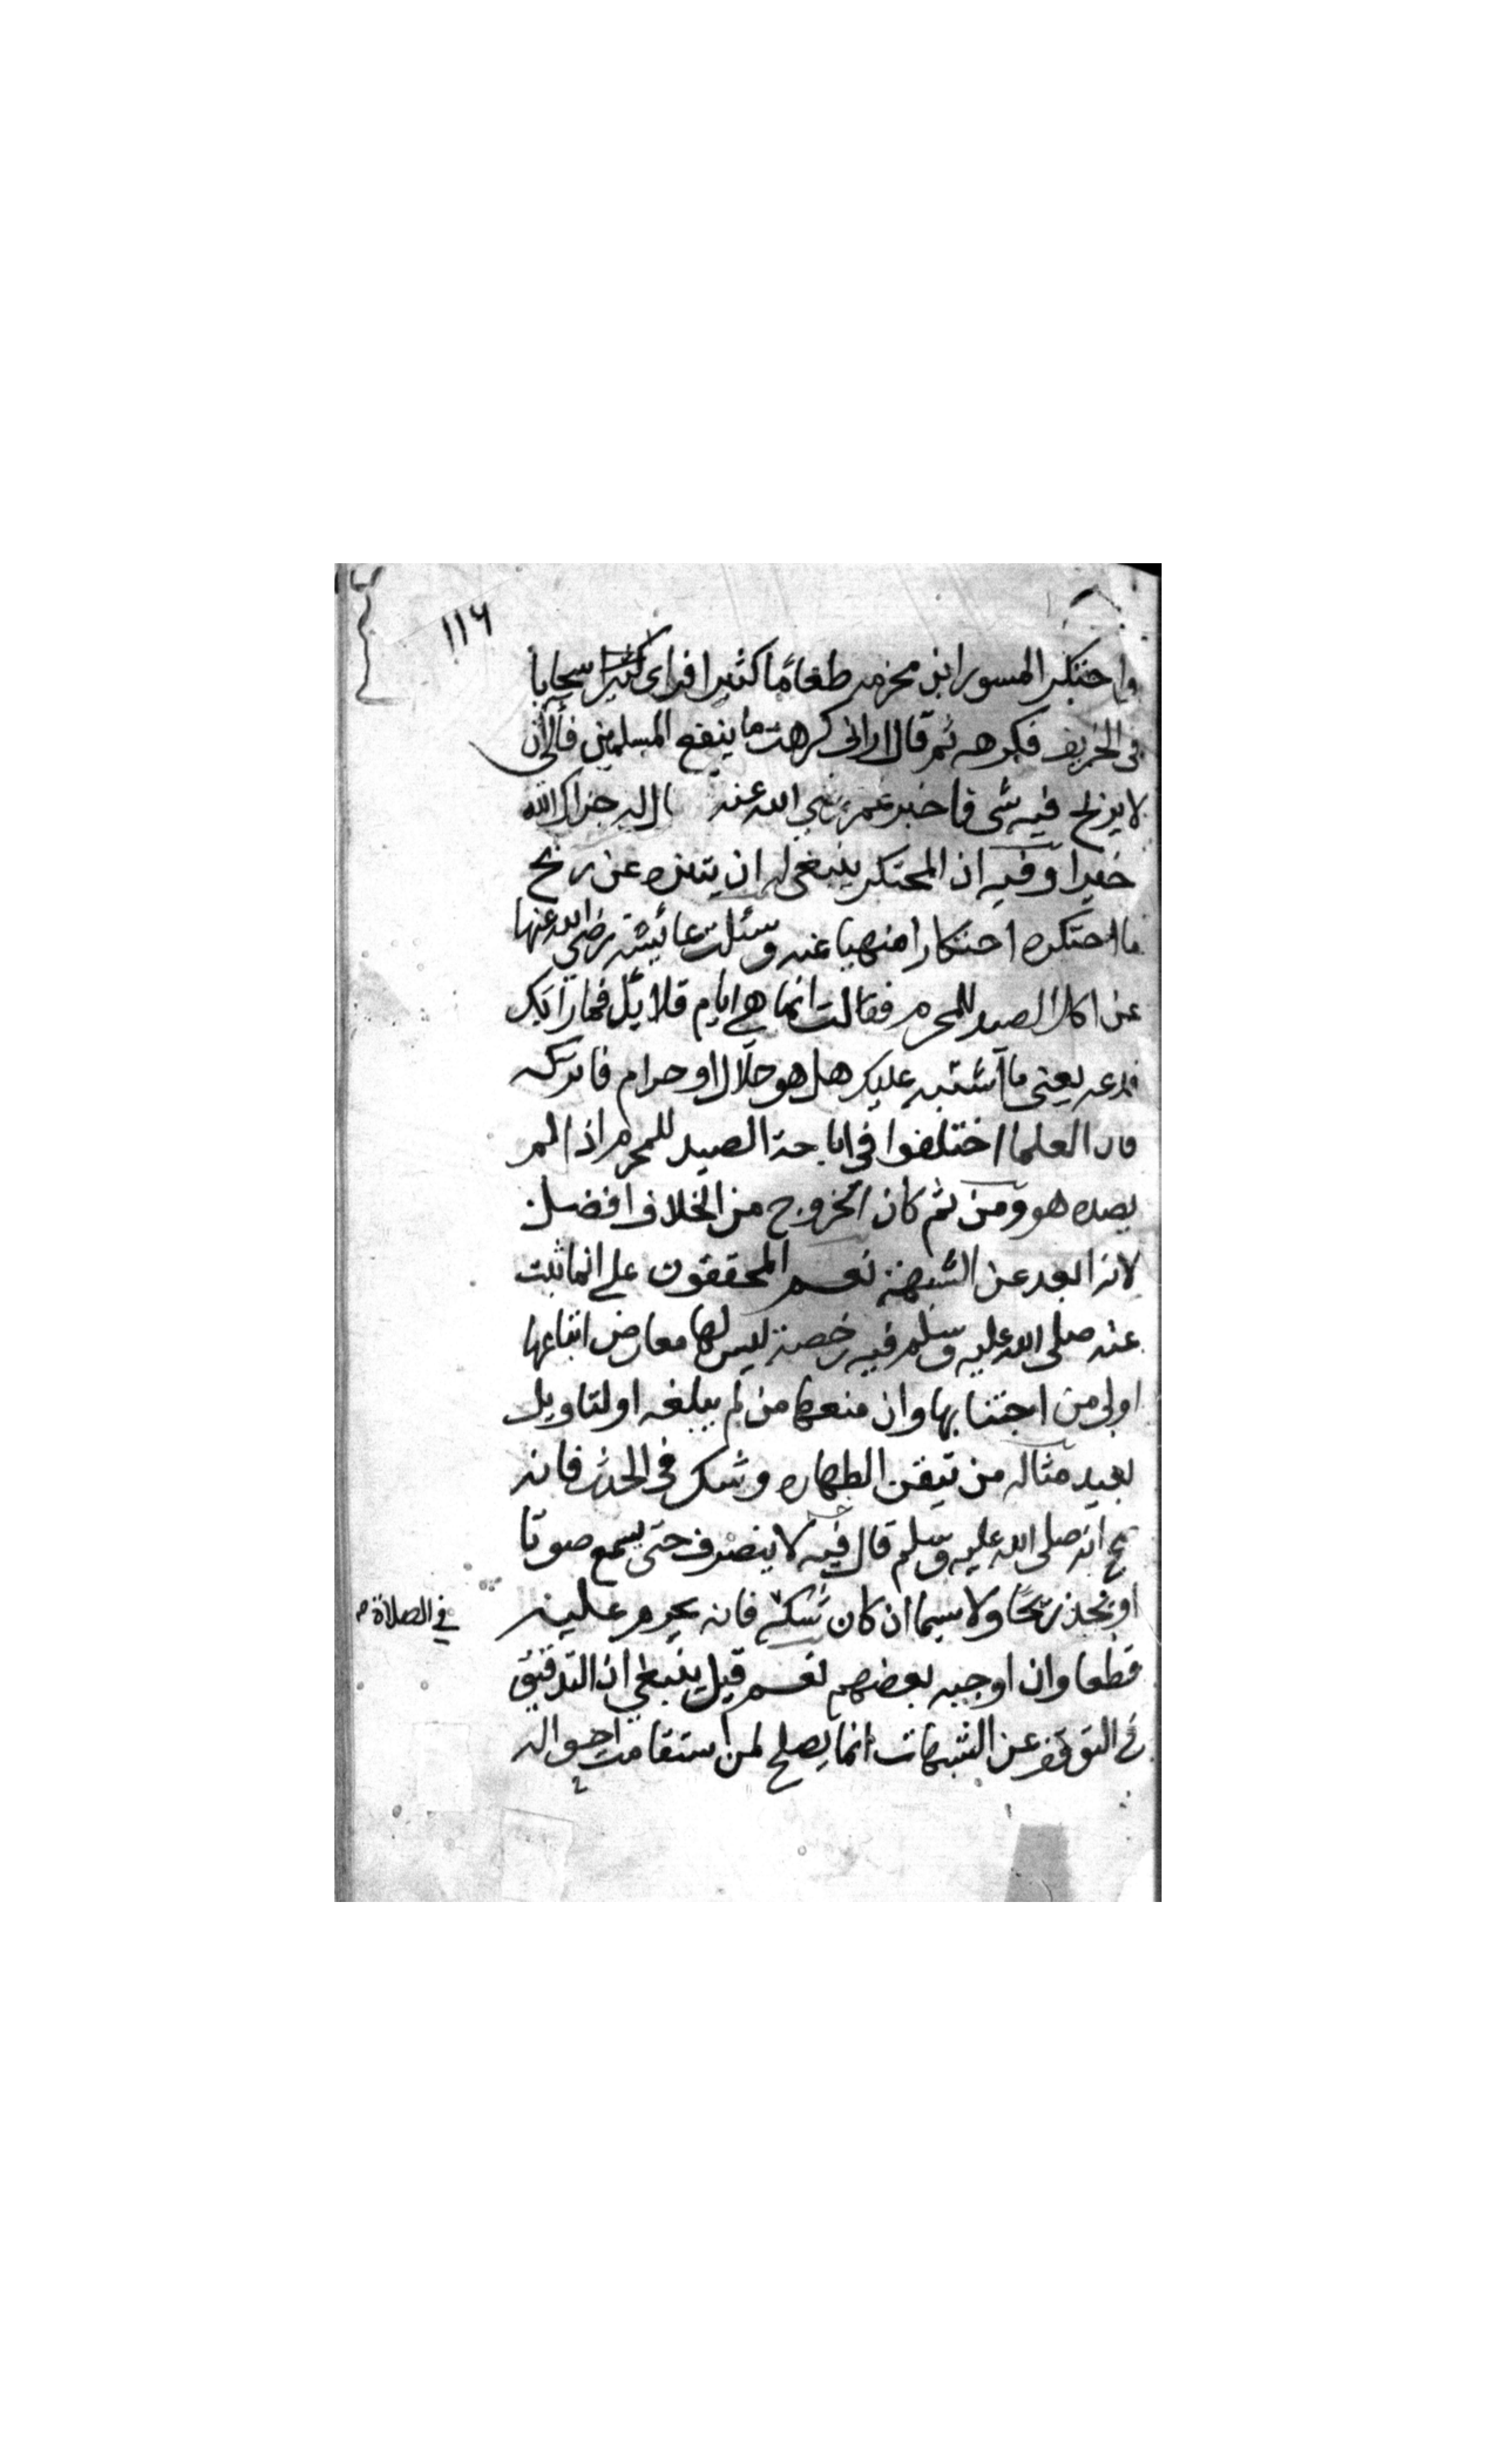 ١١٦
واحتكر المسور ابن مخرمه طعاما كثيرا فراى كثيرا سحابا
فى الخريف فكرهه ثم قال ارانى كرهت ما ينفع المسلمين فآلى ان
لا يربح فيه شى فاخبر عمر رضي الله عنه له جزاك الله
خيرا وفيه ان المحتكر ينبغى له ان يتنزه عن ربح
ما احتكره احتكارا منهيا عنه وسئلت عائيشة رضى الله عنها
عن اكل الصيد للمحرم فقالت انما هي ايام قلايل فما رابك
فدعه يعنى ما اشتبه عليك هل هو حلال او حرام فاتركه
فان العلما اختلفوا فى اباحة الصيد للمحرم اذا لم
يصده هو ومن ثم كان الخروج من الخلاف افضل
لانه ابعد عن الشبهة نعم المحققون على انما ثبت
عنه صلى الله عليه وسلم فيه رخصة ليس لها معارض اتباعها
اولى من اجتنابها وان منعها من لم يبلغه او لتاويل
بعيد مثاله من تيقن الطهاره وشك فى الحدث فانه
صح انه صلى الله عليه وسلم قال فيه لا ينصرف حتى يسمع صوتا
او يجد ريحا ولا سيما ان كان شكه فانه يحرم عليه
في الصلاة
قطعا وان اوجبه بعضهم نعم قيل ينبغي ان التدقيق
في التوقف عن الشبهات انما يصلح لمن استقامت احواله